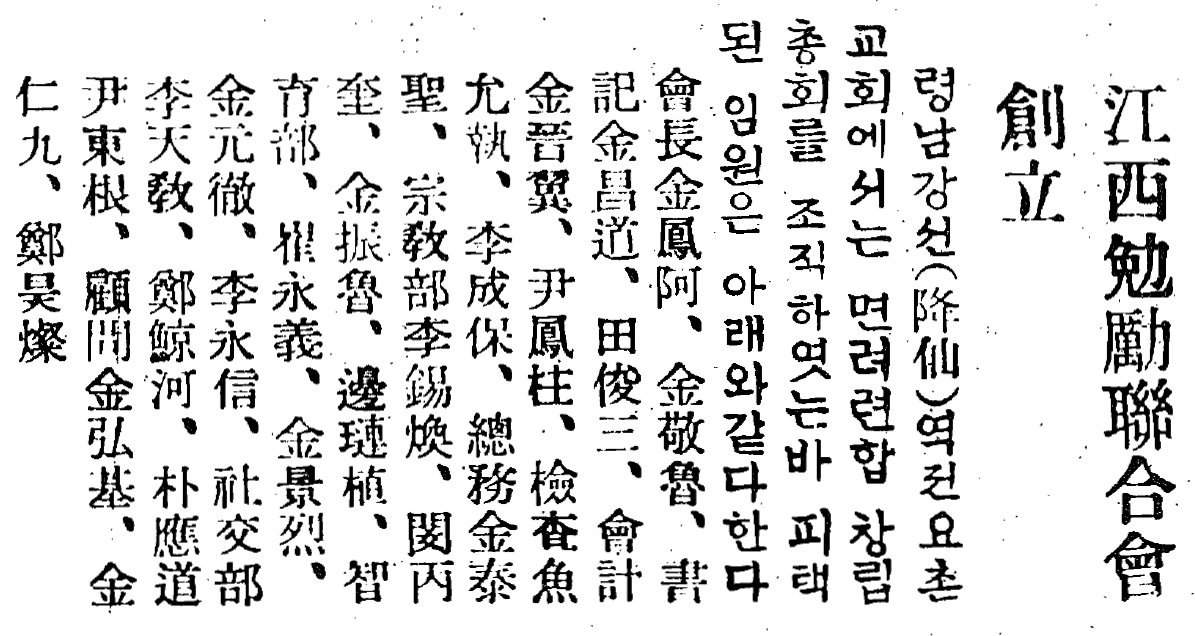 江西勉勵聯合會
創立
령남강선(降仙)역전요촌
교회에서는 면려련합 창립
총회를 조직하엿는바 피택
된 임원은 아래와갇다한다
會長金鳳阿、金敬魯、書
記金昌道、田俊三、會計
金晉翼、尹鳳柱、檢査魚
允執、李成保、總務金泰
聖、宗敎部李錫煥、閔丙
奎、金振魯、邊璉植、智
育部、崔永義、金景烈、
金元徹、李永信、社交部
李天敎、鄭鯨河、朴應道
尹東根、顧問金弘基、金
仁九、鄭昊燦